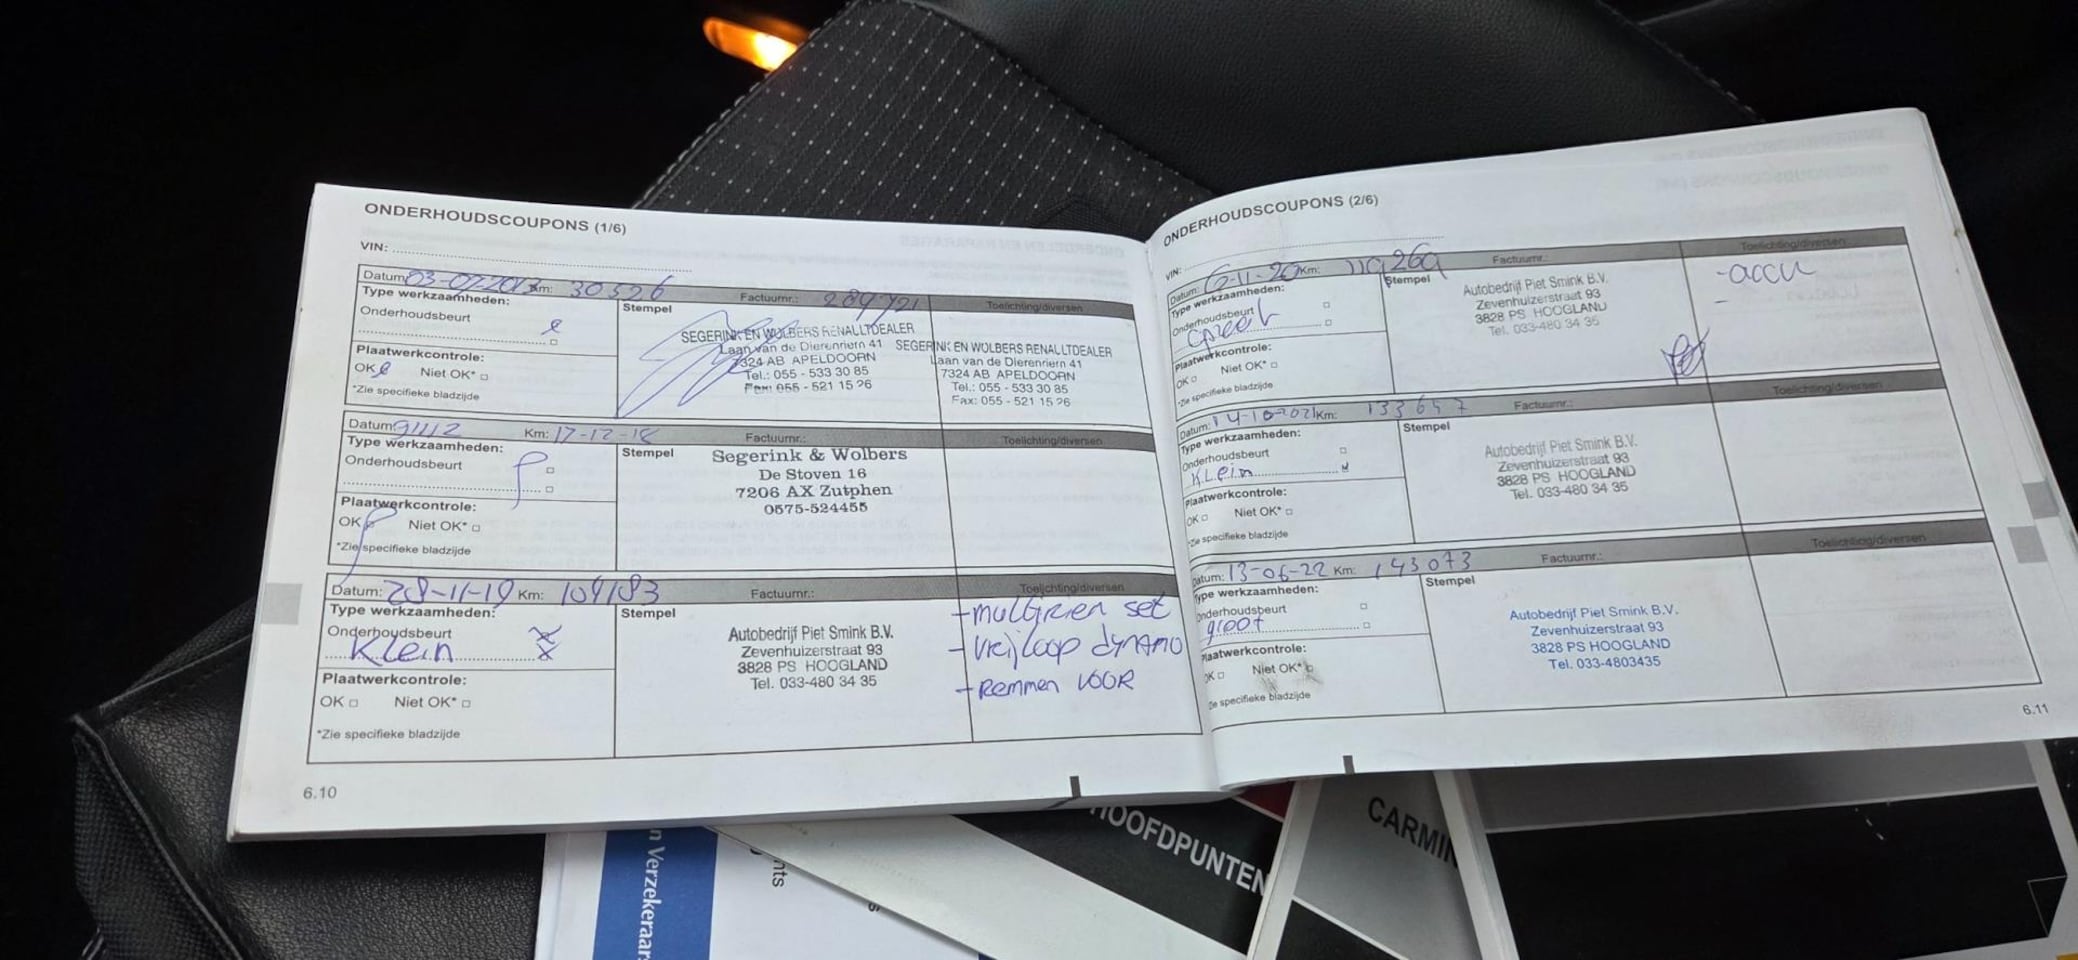 ONDERHOUDSCOUPONS (1/6)
VIN:
Datum: 03-07-2013 Km: 30526 Factuurnr.: 289721 Toelichting/diversen
Type werkzaamheden:
Onderhoudsbeurt
Plaatwerkcontrole:
OK Niet OK*
*Zie specifieke bladzijde
Stempel
SEGERINK EN WOLBERS RENAULTDEALER
Laan van de Dierenriem 41
7324 AB APELDOORN
Tel.: 055 - 533 30 85
Fax: 055 - 521 15 26
SEGERINK EN WOLBERS RENAULTDEALER
Laan van de Dierenriem 41
7324 AB APELDOORN
Tel.: 055 - 533 30 85
Fax: 055 - 521 15 26
Datum: 91112 Km: 17-12-18 Factuurnr.: Toelichting/diversen
Type werkzaamheden:
Onderhoudsbeurt
Plaatwerkcontrole:
OK Niet OK*
*Zie specifieke bladzijde
Stempel
Segerink & Wolbers
De Stoven 16
7206 AX Zutphen
0575-524455
Datum: 28-11-19 Km: 109183 Factuurnr.: Toelichting/diversen
Type werkzaamheden:
Onderhoudsbeurt
Klein
Plaatwerkcontrole:
OK Niet OK*
*Zie specifieke bladzijde
Stempel
Autobedrijf Piet Smink B.V.
Zevenhuizerstraat 93
3828 PS HOOGLAND
Tel. 033-480 34 35
- multiriem set
- vrijloop dynamo
- Remmen VOOR
6.10
ONDERHOUDSCOUPONS (2/6)
VIN:
Datum: 6-11-20 Km: 119269 Factuurnr.: Toelichting/diversen
Type werkzaamheden:
Onderhoudsbeurt
Plaatwerkcontrole:
OK Niet OK*
*Zie specifieke bladzijde
Stempel
Autobedrijf Piet Smink B.V.
Zevenhuizerstraat 93
3828 PS HOOGLAND
Tel. 033-480 34 35
-accu
-
Datum: 14-10-2021 Km: 133657 Factuurnr.: Toelichting/diversen
Type werkzaamheden:
Onderhoudsbeurt
Klein
Plaatwerkcontrole:
OK Niet OK*
*Zie specifieke bladzijde
Stempel
Autobedrijf Piet Smink B.V.
Zevenhuizerstraat 93
3828 PS HOOGLAND
Tel. 033-480 34 35
Datum: 13-06-22 Km: 143073 Factuurnr.: Toelichting/diversen
Type werkzaamheden:
Onderhoudsbeurt
groot
Plaatwerkcontrole:
OK Niet OK*
Zie specifieke bladzijde
Stempel
Autobedrijf Piet Smink B.V.
Zevenhuizerstraat 93
3828 PS HOOGLAND
Tel. 033-4803435
6.11
HOOFDPUNTEN
CARMIN
n Verzekeraars
nts